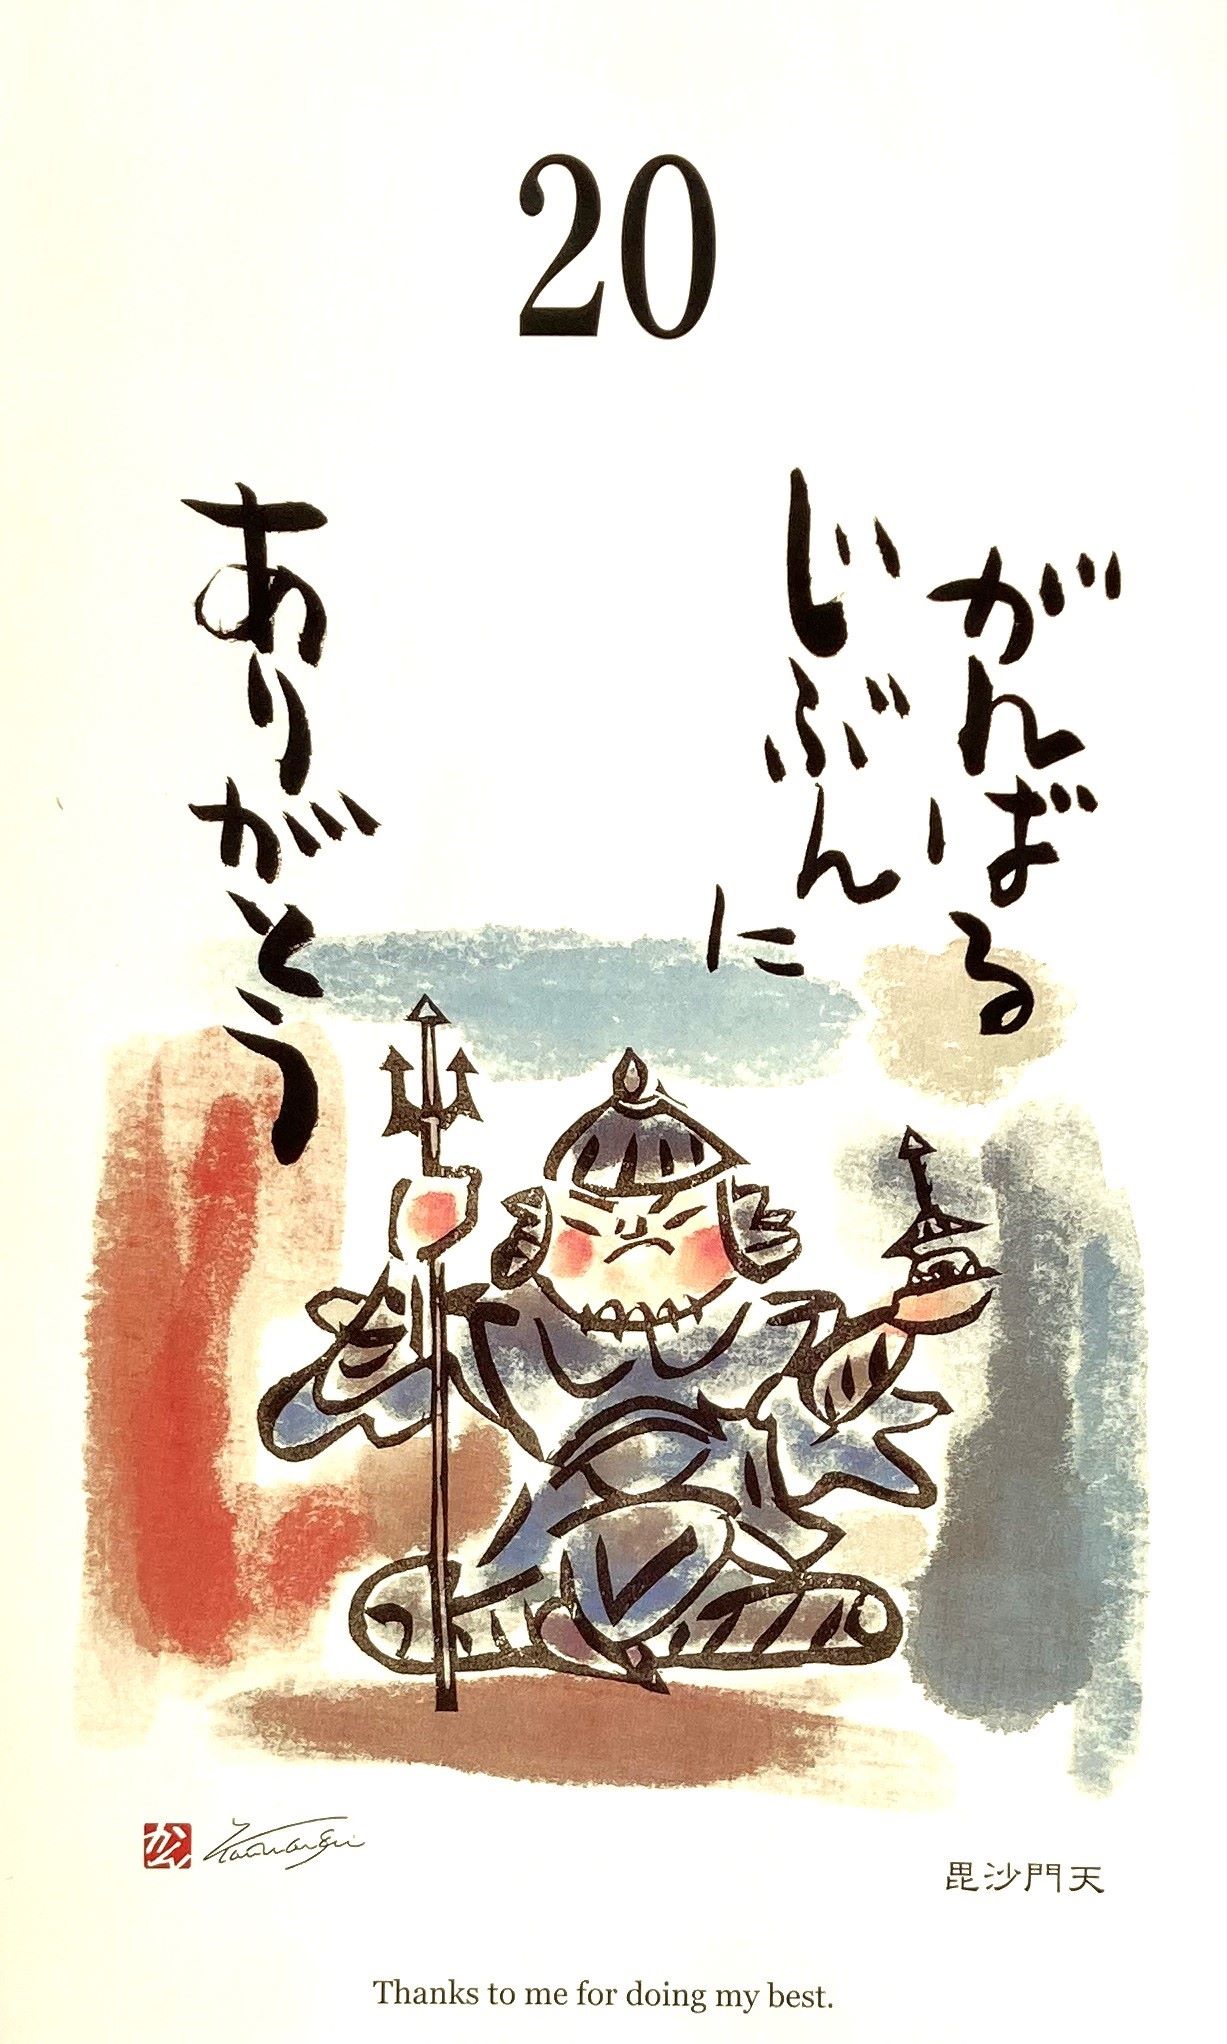 20
がんばる
じぶんに
ありがとう
かん
毘沙門天
Thanks to me for doing my best.